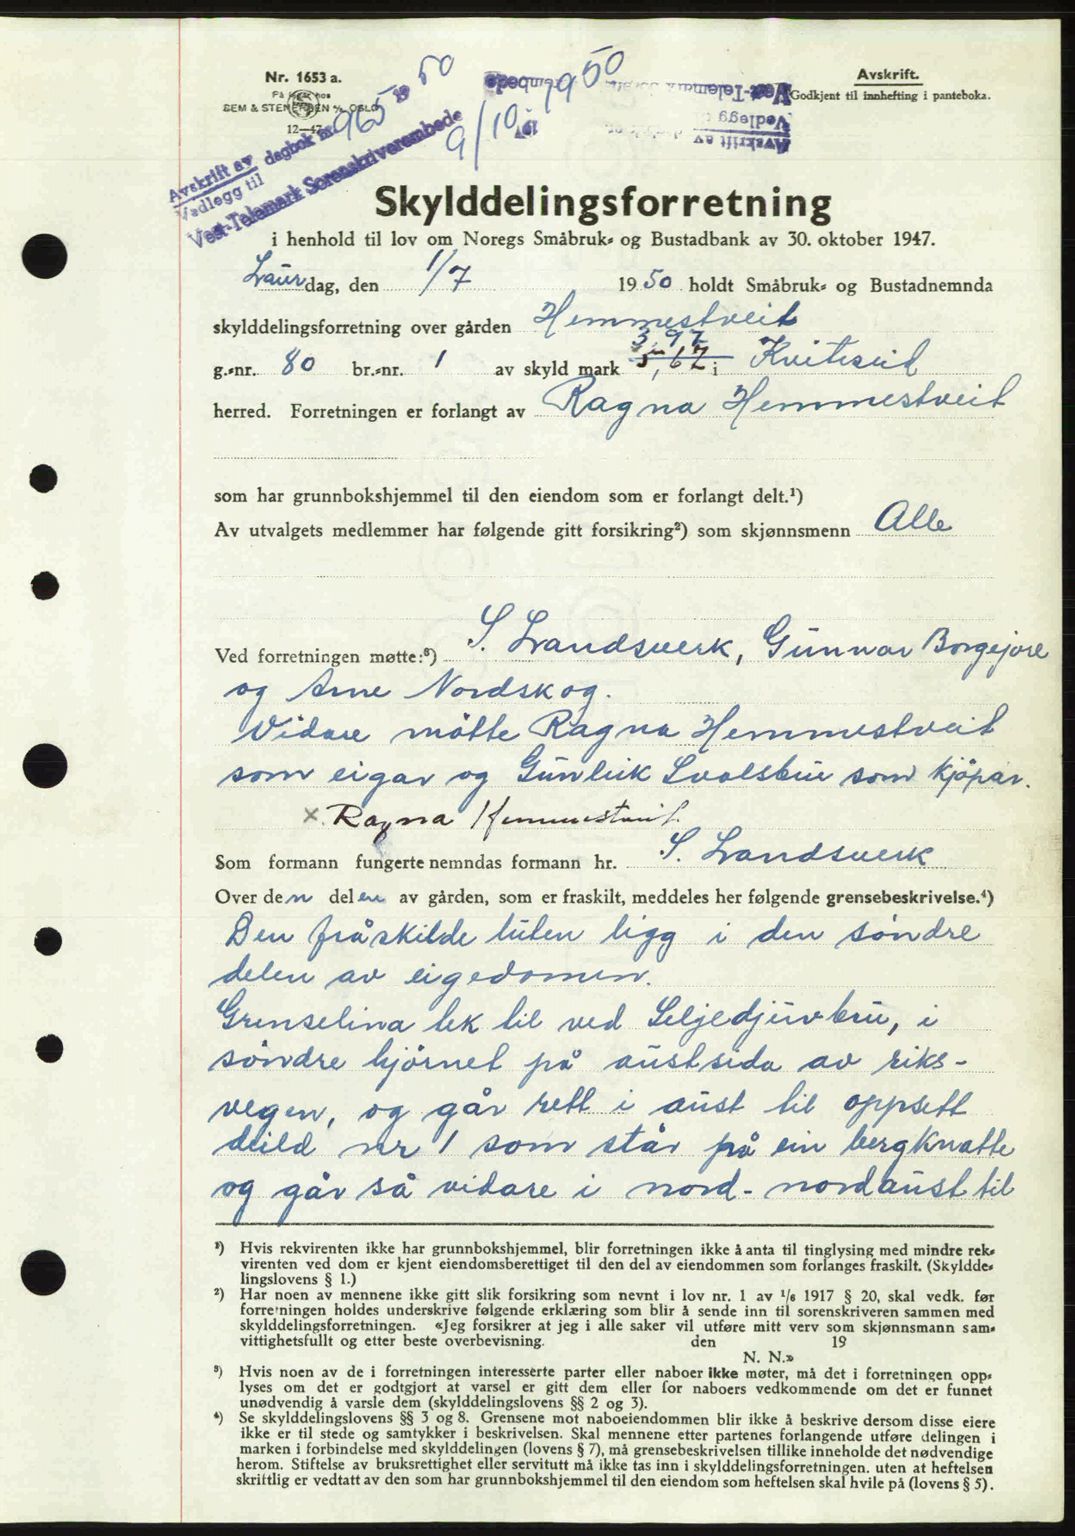 Nr. 1653 a.
På lager hos
SEM & STENERSEN A/S, OSLO
12—47
Avskrift av
Vedlegg til dagbok nr. 965 1950
Vest-Telemark Sorenskriverembede
9/10 - 1950
Avskrift.
Godkjent til innhefting i panteboka.
Skylddelingsforretning
i henhold til lov om Noregs Småbruk- og Bustadbank av 30. oktober 1947.
Laurdag, den 1/7 1950 holdt Småbruk- og Bustadnemnda
skylddelingsforretning over gården Hemmestveit
3,97
g.-nr. 80 br.-nr. 1 av skyld mark 5,67 i Kviteseid
herred. Forretningen er forlangt av Ragna Hemmestveit
som har grunnbokshjemmel til den eiendom som er forlangt delt.¹)
Av utvalgets medlemmer har følgende gitt forsikring²) som skjønnsmenn Alle
Ved forretningen møtte:³) S. Landsverk, Gunnar Borgejore
og Arne Nordskog.
Vidare møtte Ragna Hemmestveit
som eigar og Gunleik Svalsbru som kjøpar.
x. Ragna Hemmestveit.
Som formann fungerte nemndas formann hr. S. Landsverk
Over den delen av gården, som er fraskilt, meddeles her følgende grensebeskrivelse.⁴)
Den fråskilde luten ligg i den søndre
delen av eigedomen.
Grenselina tek til ved Seljedjuvbru, i
søndre hjørnet på austsida av riks-
vegen, og går rett i aust til oppsett
deild nr 1 som står på ein bergknatte
og går så vidare i nord-nordaust til
¹) Hvis rekvirenten ikke har grunnbokshjemmel, blir forretningen ikke å anta til tinglysing med mindre rek-
virenten ved dom er kjent eiendomsberettiget til den del av eiendommen som forlanges fraskilt. (Skyldde-
lingslovens § 1.)
²) Har noen av mennene ikke gitt slik forsikring som nevnt i lov nr. 1 av 1/6 1917 § 20, skal vedk. før
forretningen holdes underskrive følgende erklæring som blir å sende inn til sorenskriveren sammen med
skylddelingsforretningen. «Jeg forsikrer at jeg i alle saker vil utføre mitt verv som skjønnsmann sam-
vittighetsfullt og etter beste overbevisning. den 19
N. N.»
³) Hvis noen av de i forretningen interesserte parter eller naboer ikke møter, må det i forretningen opp-
lyses om det er godtgjort at varsel er gitt dem eller for naboers vedkommende om det er funnet
unødvendig å varsle dem (skylddelingslovens §§ 2 og 3).
⁴) Se skylddelingslovens §§ 3 og 8. Grensene mot naboeiendommen blir ikke å beskrive dersom disse eiere
ikke er til stede og samtykker i beskrivelsen. Skal mennene etter partenes forlangende utføre delingen i
marken i forbindelse med skylddelingen (lovens § 7), må grensebeskrivelsen tillike inneholde det nødvendige
herom. Stiftelse av bruksrettighet eller servitutt må ikke tas inn i skylddelingsforretningen, uten at heftelsen
skriftlig er vedtatt av den som har grunnbokshjemmel til den eiendom som heftelsen skal hvile på (lovens § 5).